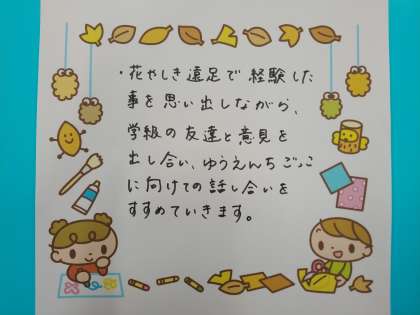 ・花やしき遠足で経験した
事を思い出しながら、
学級の友達と意見を
出し合い、ゆうえんちごっこ
に向けての話し合いを
すすめていきます。